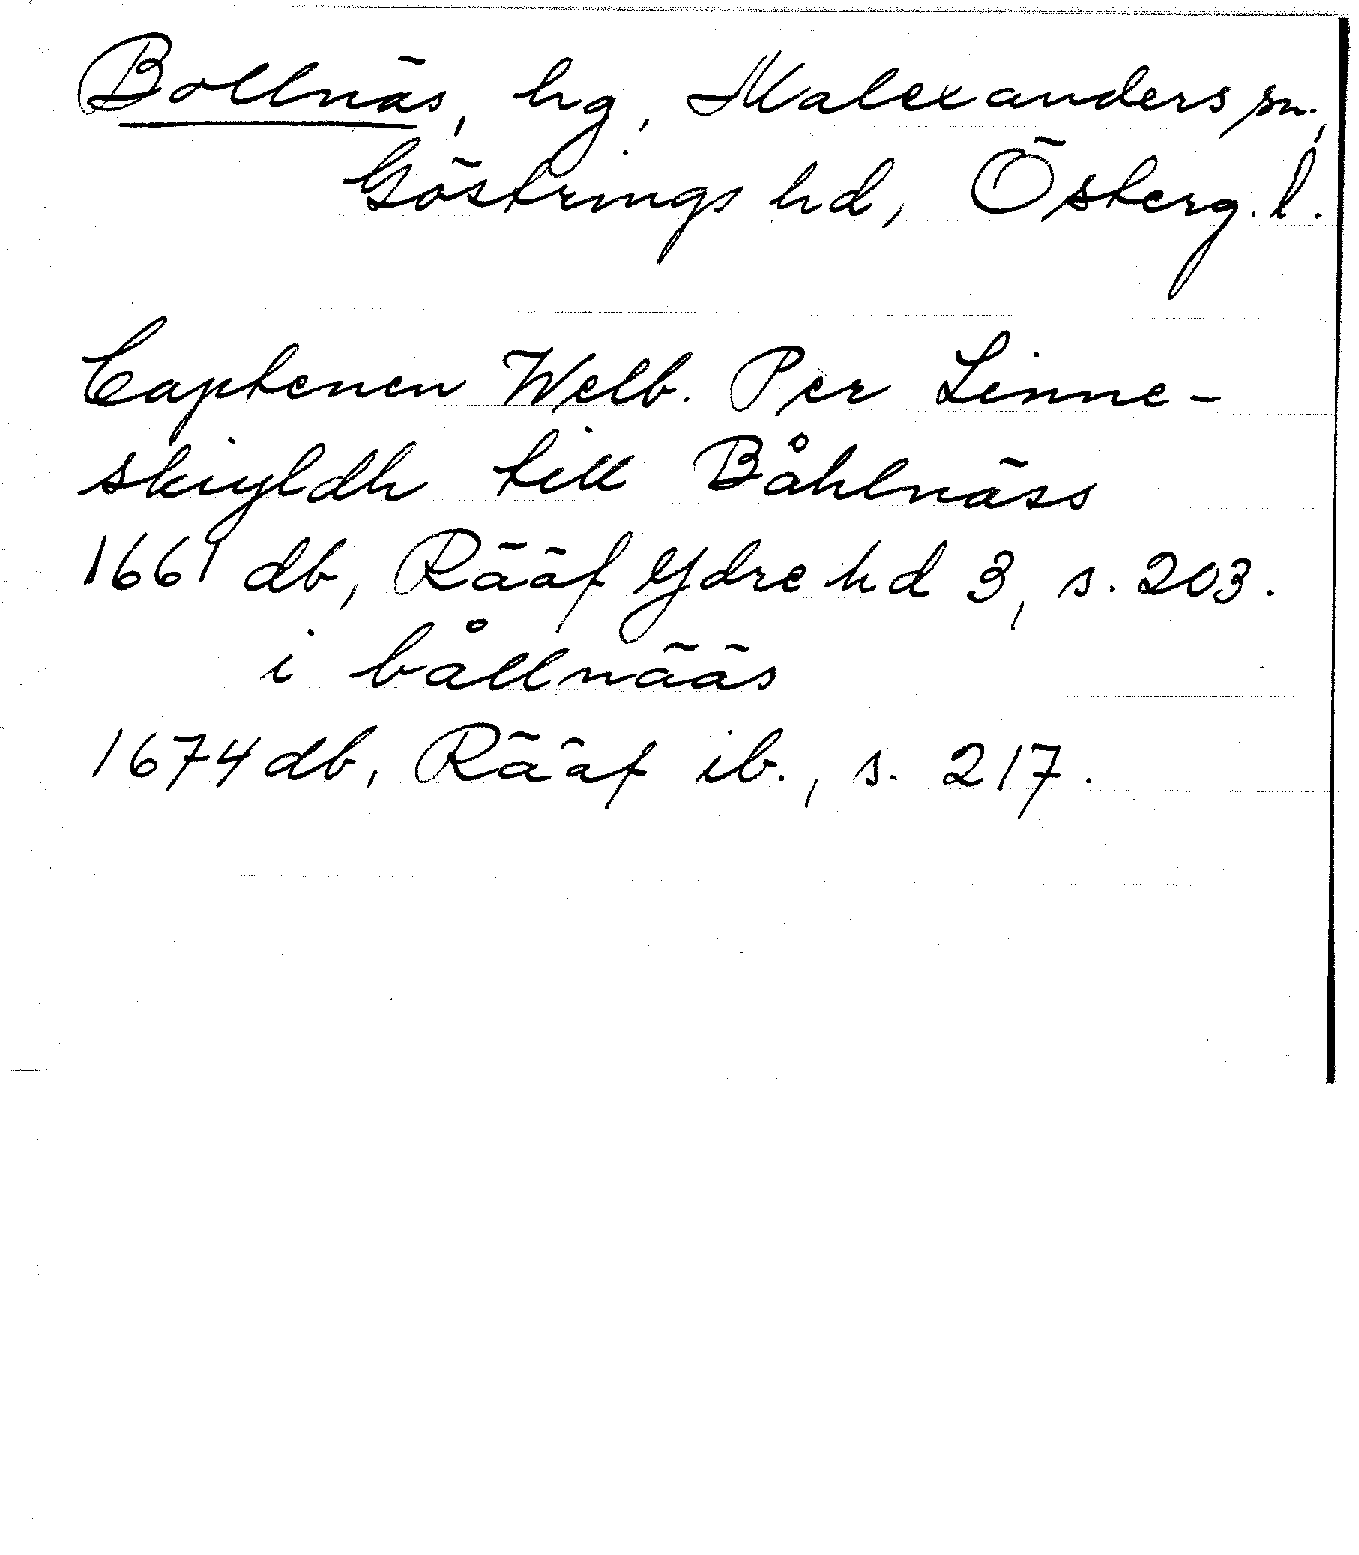 Bollnäs, hg, Malexanders sn.,
Göstrings hd, Österg. l.
Captenen Welb. Per Linne-
skiyldh till Båhlnäss
1661 db, Rääf Ydre hd 3, s. 203.
i bållnääs
1674 db, Rääf ib., s. 217.